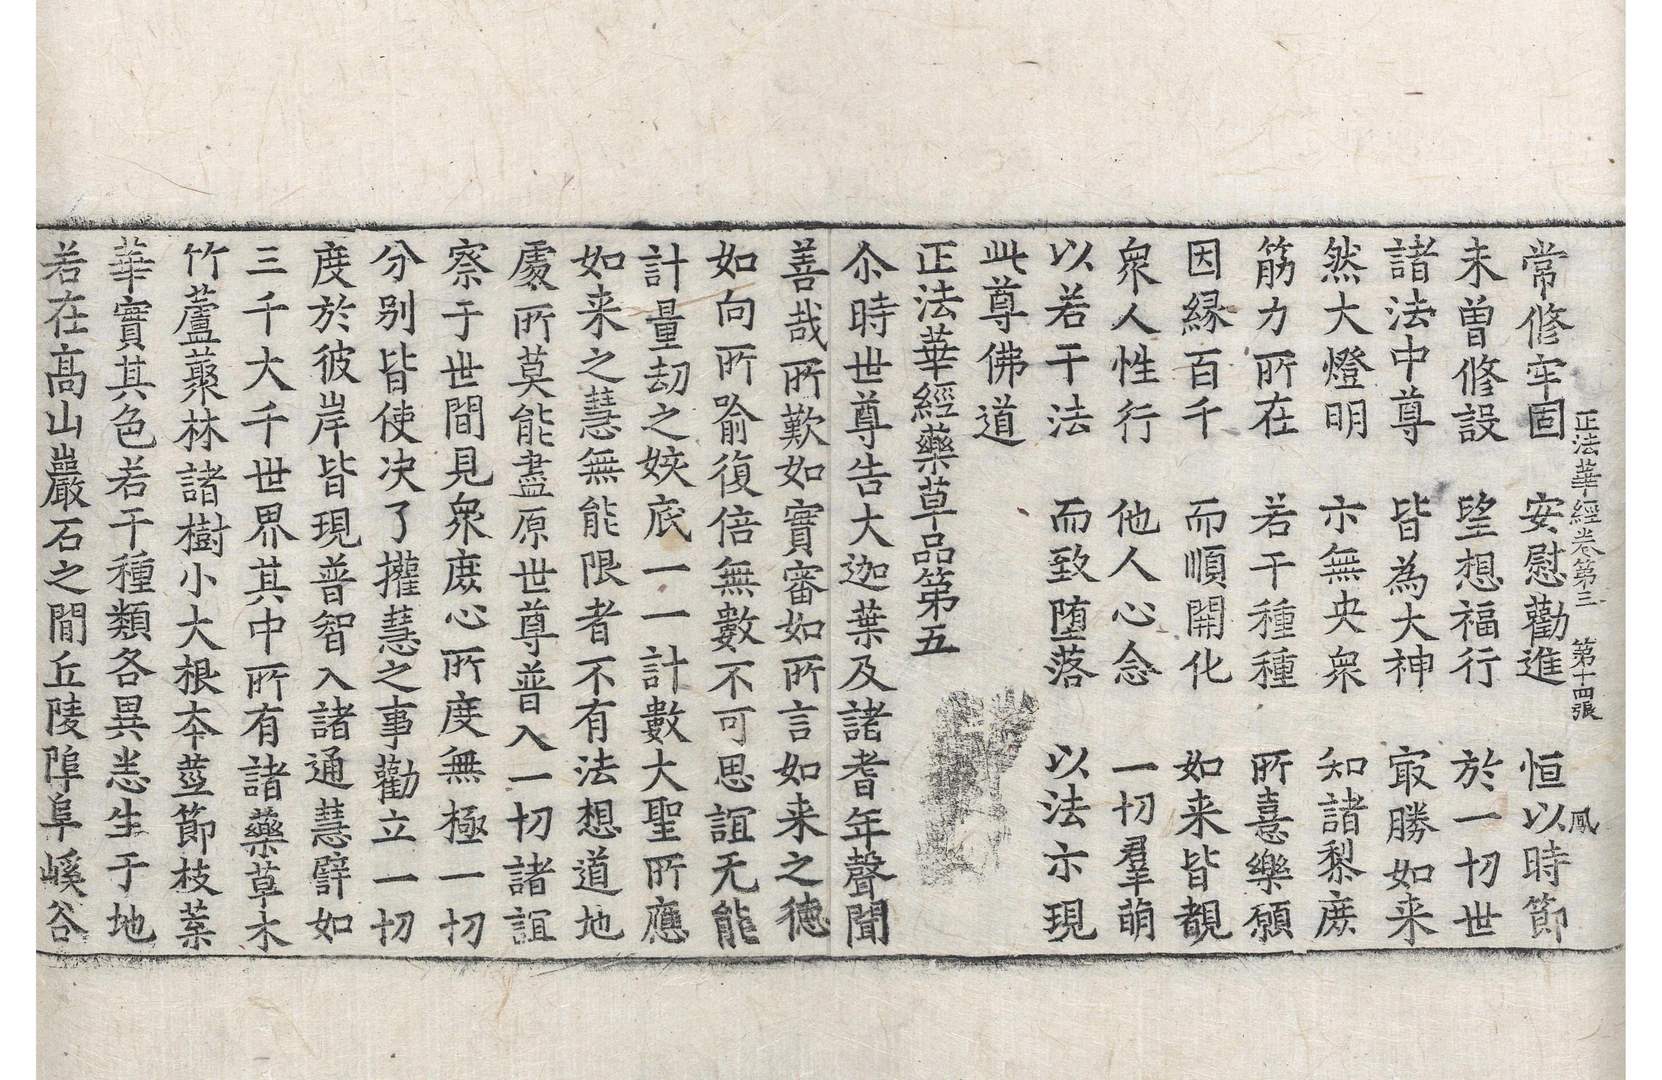 正法華經卷第三　第十四張　鳳
常修牢固　安慰勸進　恒以時節
未曽修設　望想福行　於一切世
諸法中尊　皆為大神　㝡勝如来
然大燈明　亦無央衆　知諸黎庶
筋力所在　若干種種　所憙樂願
因縁百千　而順開化　如来皆覩
衆人性行　他人心念　一切羣萌
以若干法　而致墮落　以法亦現
此尊佛道
正法華經藥草品第五
尒時世尊告大迦葉及諸耆年聲聞
善哉所歎如實審如所言如来之德
如向所喻復倍無數不可思誼无能
計量劫之姟底一一計數大聖所應
如来之慧無能限者不有法想道地
處所莫能盡原世尊普入一切諸誼
察于世間見衆庶心所度無極一切
分別皆使决了攉慧之事勸立一切
度於彼岸皆現普智入諸通慧譬如
三千大千世界其中所有諸藥草木
竹蘆藂林諸樹小大根夲莖節枝葉
華實其色若干種類各異悉生于地
若在髙山巖石之間丘陵阜嵠谷